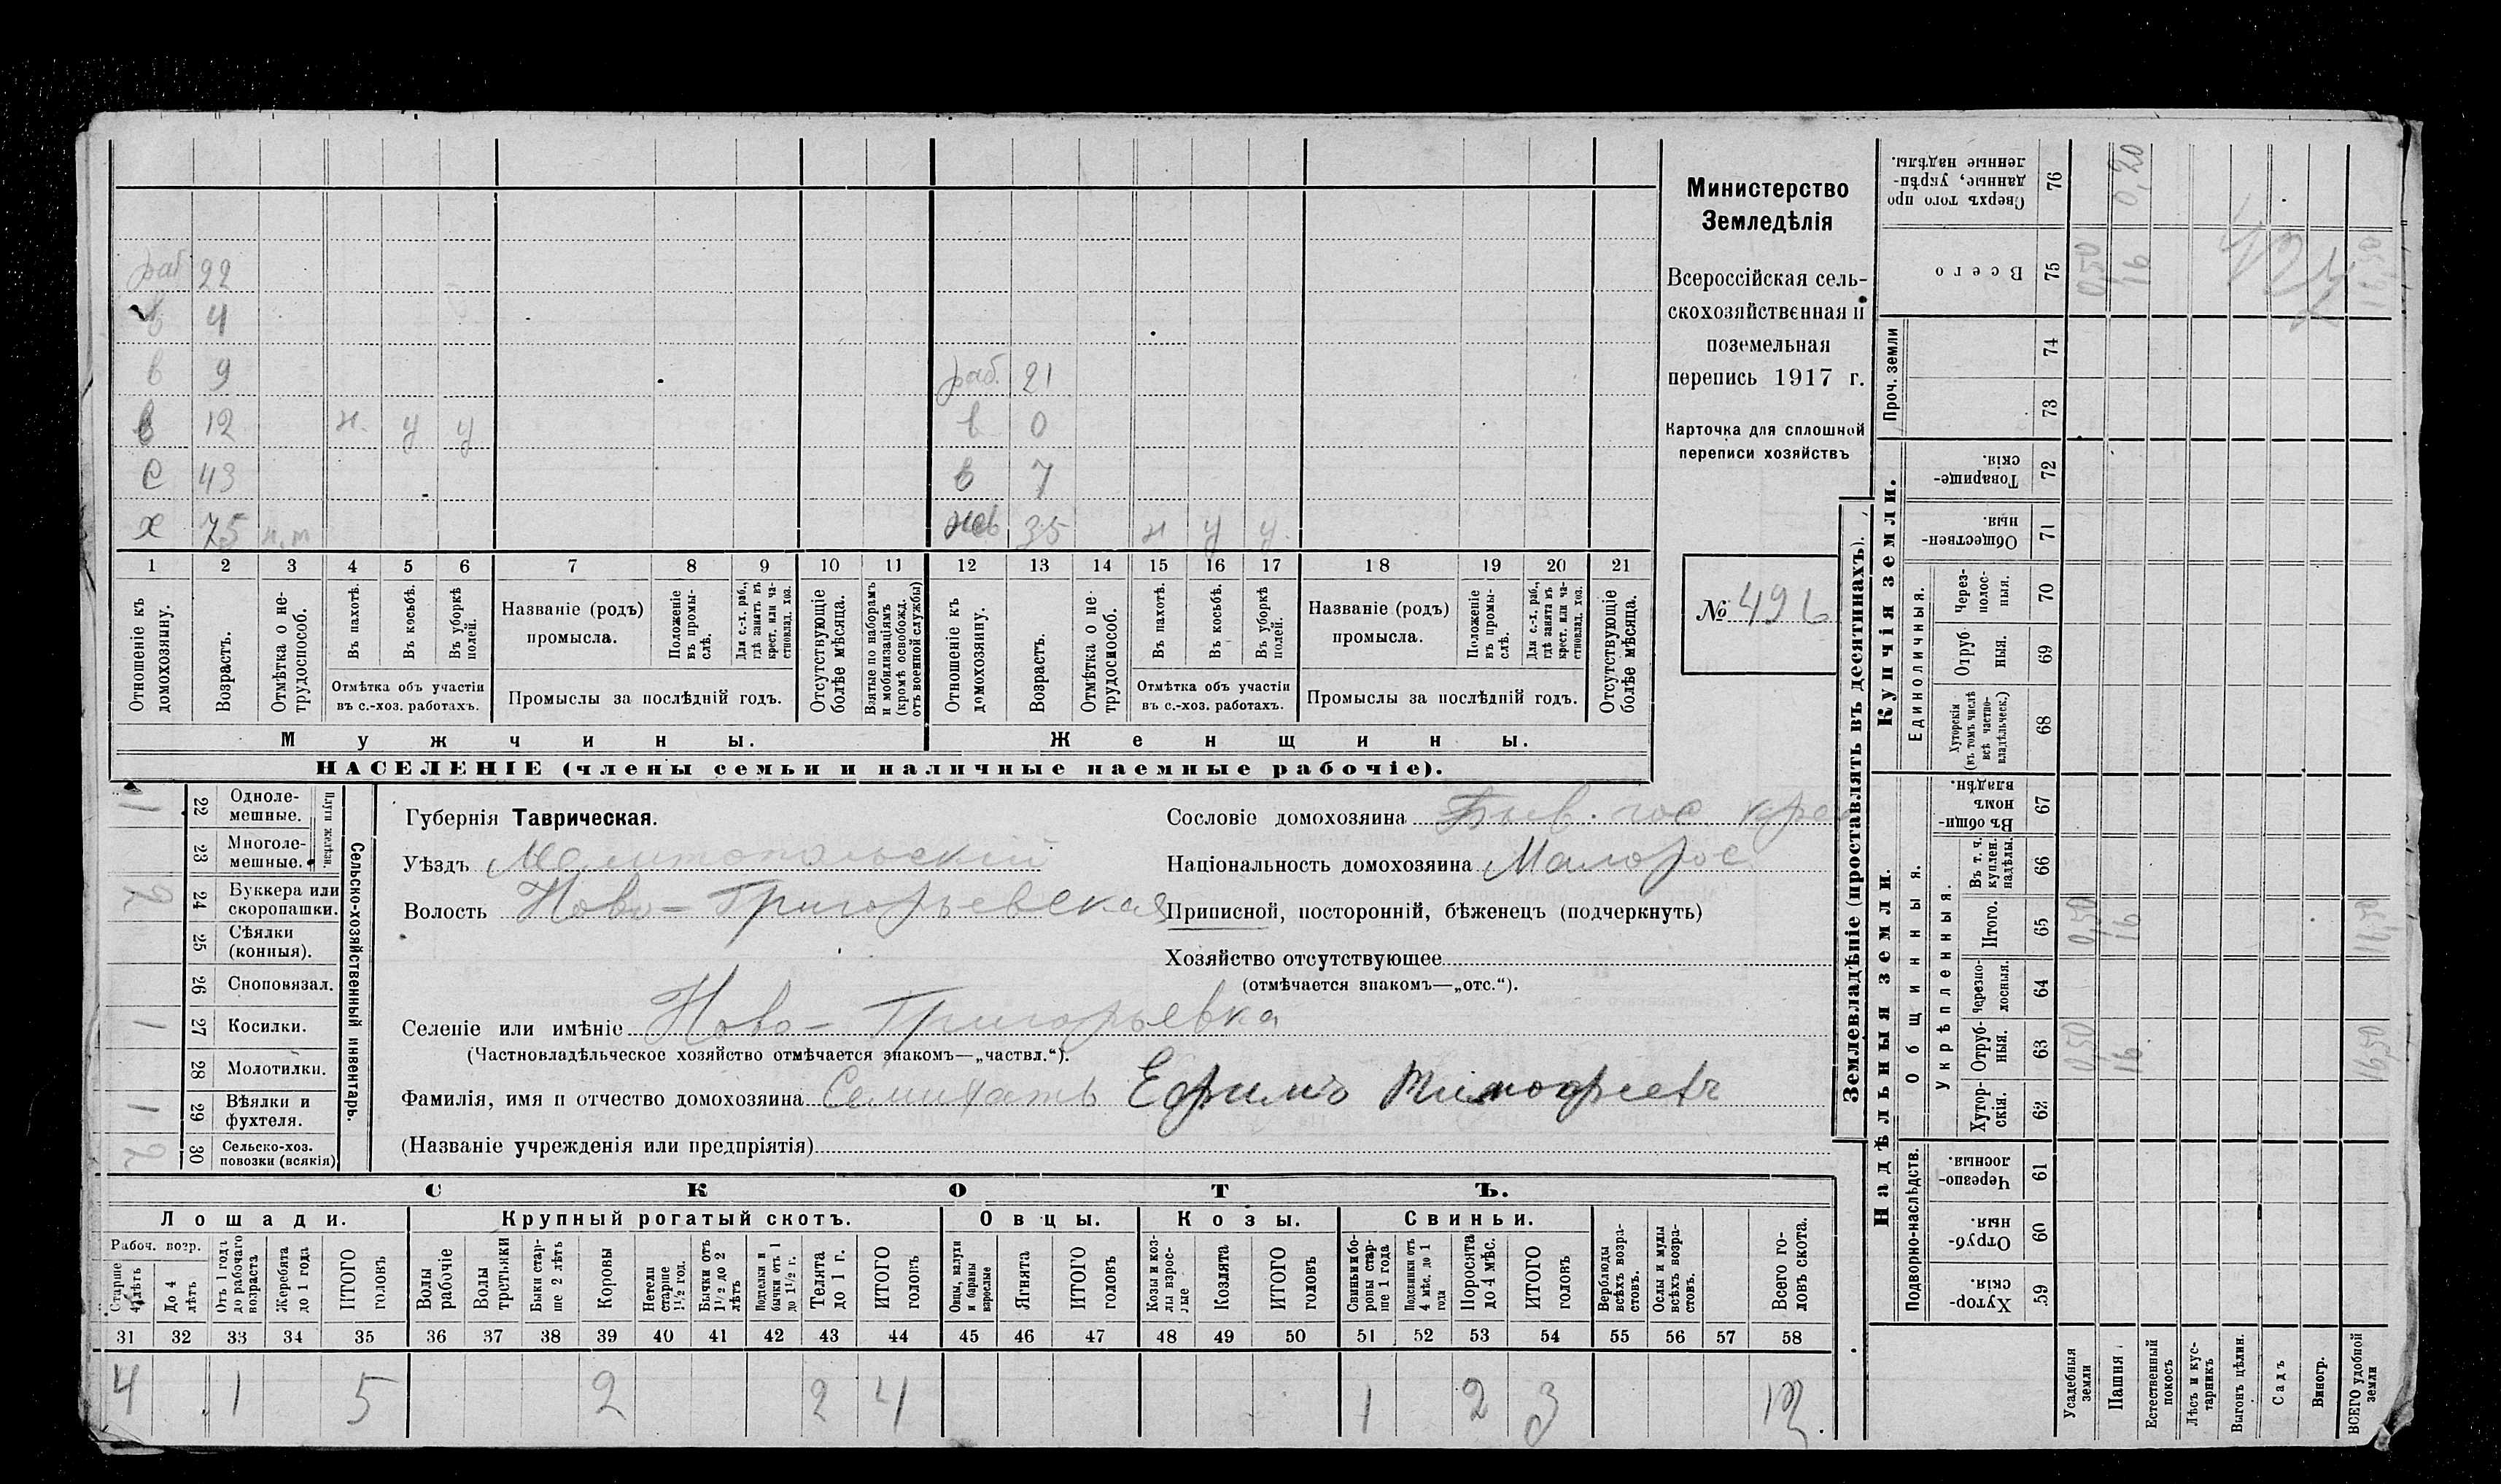 раб 22
в 4
в 9
раб. 21
в 12 н. у у
в 0
с 43
в 7
х 75 н.т
нев 35 н у у
1 2 3 4 5 6 7 8 9 10 11 12 13 14 15 16 17 18 19 20 21
Отношеніе къ домохозяину.
Возрастъ.
Отмѣтка о не-
трудоспособ.
Въ пахотѣ.
Въ косьбѣ.
Въ уборкѣ полей.
Отмѣтка объ участіи
въ с.-хоз. работахъ.
Названіе (родъ)
промысла.
Положеніе
въ промы-
слѣ.
Для с.-х. раб.,
гдѣ занятъ въ
крест. или ча-
стновлад. хоз.
Промыслы за послѣдній годъ.
Отсутствующіе
болѣе мѣсяца.
Взятые по наборамъ
и мобилизаціямъ
(кромѣ освобожд.
отъ военной службы)
Отношеніе къ
домохозяину.
Возрастъ.
Отмѣтка о не
трудоспособ.
Въ пахотѣ.
Въ косьбѣ.
Въ уборкѣ
полей.
Отмѣтка объ участіи
въ с.-хоз. работахъ.
Названіе (родъ)
промысла.
Положеніе
въ промы-
слѣ.
Для с.-х. раб.,
гдѣ занята въ
крест. или ча-
стновлад. хоз.
Промыслы за послѣдній годъ.
Отсутствующіе
болѣе мѣсяца.
Мужчины.
Женщины.
НАСЕЛЕНІЕ (члены семьи и наличные наемные рабочіе).
Министерство
Земледѣлія
Всероссійская сель-
скохозяйственная и
поземельная
перепись 1917 г.
Карточка для сплошной
переписи хозяйствъ
№ 496
Сельско-хозяйственный инвентарь.
Плуги желѣзн.
1 22 Одноле-
мешные.
23 Многоле-
мешные.
2 24 Буккера или
скоропашки.
25 Сѣялки
(конныя).
26 Сноповязал.
1 27 Косилки.
28 Молотилки.
1 29 Вѣялки и
фухтеля.
2 30 Сельско-хоз.
повозки (всякія)
Губернія Таврическая.
Уѣздъ Мелитопольскій
Волость Ново-Григорьевская
Селеніе или имѣніе Ново-Григорьевка
(Частновладѣльческое хозяйство отмѣчается знакомъ—„частвл.“).
Фамилія, имя и отчество домохозяина Семихатъ Ефимъ Тимофѣевъ
(Названіе учрежденія или предпріятія)
Сословіе домохозяина Быв. гос. крес
Національность домохозяина Малорос
Приписной, посторонній, бѣженецъ (подчеркнуть)
Хозяйство отсутствующее
(отмѣчается знакомъ—„отс.“).
СКОТЪ.
Лошади.
Крупный рогатый скотъ.
Овцы.
Козы.
Свиньи.
Рабоч. возр.
Старше
4 лѣтъ
До 4
лѣтъ
Отъ 1 года
до рабочаго
возраста
Жеребята
до 1 года
ИТОГО
головъ
Волы
рабочіе
Волы
третьяки
Быки стар-
ше 2 лѣтъ
Коровы
Нетели
старше
1½ год.
Бычки отъ
1½ до 2
лѣтъ
Подтелки и
бычки отъ 1
до 1½ г.
Телята
до 1 г.
ИТОГО
головъ
Овцы, валухи
и бараны
взрослые
Ягнята
ИТОГО
головъ
Козы и коз-
лы взрос-
лые
Козлята
ИТОГО
головъ
Свиньи и бо-
ровы стар-
ше 1 года
Подсвинки отъ
4 мѣс. до 1
года
Поросята
до 4 мѣс.
ИТОГО
головъ
Верблюды
всѣхъ возра-
стовъ.
Ослы и мулы
всѣхъ возра-
стовъ.
Всего го-
ловъ скота.
31 32 33 34 35 36 37 38 39 40 41 42 43 44 45 46 47 48 49 50 51 52 53 54 55 56 57 58
4 1 5 2 2 4 1 2 3 12
Землевладѣніе (проставлять въ десятинахъ).
Надѣльныя земли.
Купчія земли.
Проч. земли
Подворно-наслѣдств.
Общинныя.
Укрѣпленныя.
Единоличныя.
Сверхъ того про
данные, укрѣп-
ленные надѣлы.
76 0,20
Всего
75 0,50 16 16,50
74
73
Товарище-
скія.
72
Обществен-
ныя.
71
Через-
полос-
ныя.
70
Отруб
ныя.
69
Хуторскія
(въ томъ числѣ
всѣ частно-
владѣльческ.)
68
Въ общи-
номъ
владѣн.
67
Въ т. ч.
куплен.
надѣлы.
66
Итого.
65 0,50 16 16,50
Черезпо-
лосныя.
64
Отруб-
ныя.
63 0,50 16 16,50
Хутор-
скія.
62
Черезпо-
лосныя.
61
Отруб-
ныя.
60
Хутор-
скія.
59
Усадебныя
земли
Пашня
Естественный
покосъ
Лѣсъ и кус-
тарникъ
Выгонъ цѣлин.
Садъ
Виногр.
ВСЕГО удобной
земли